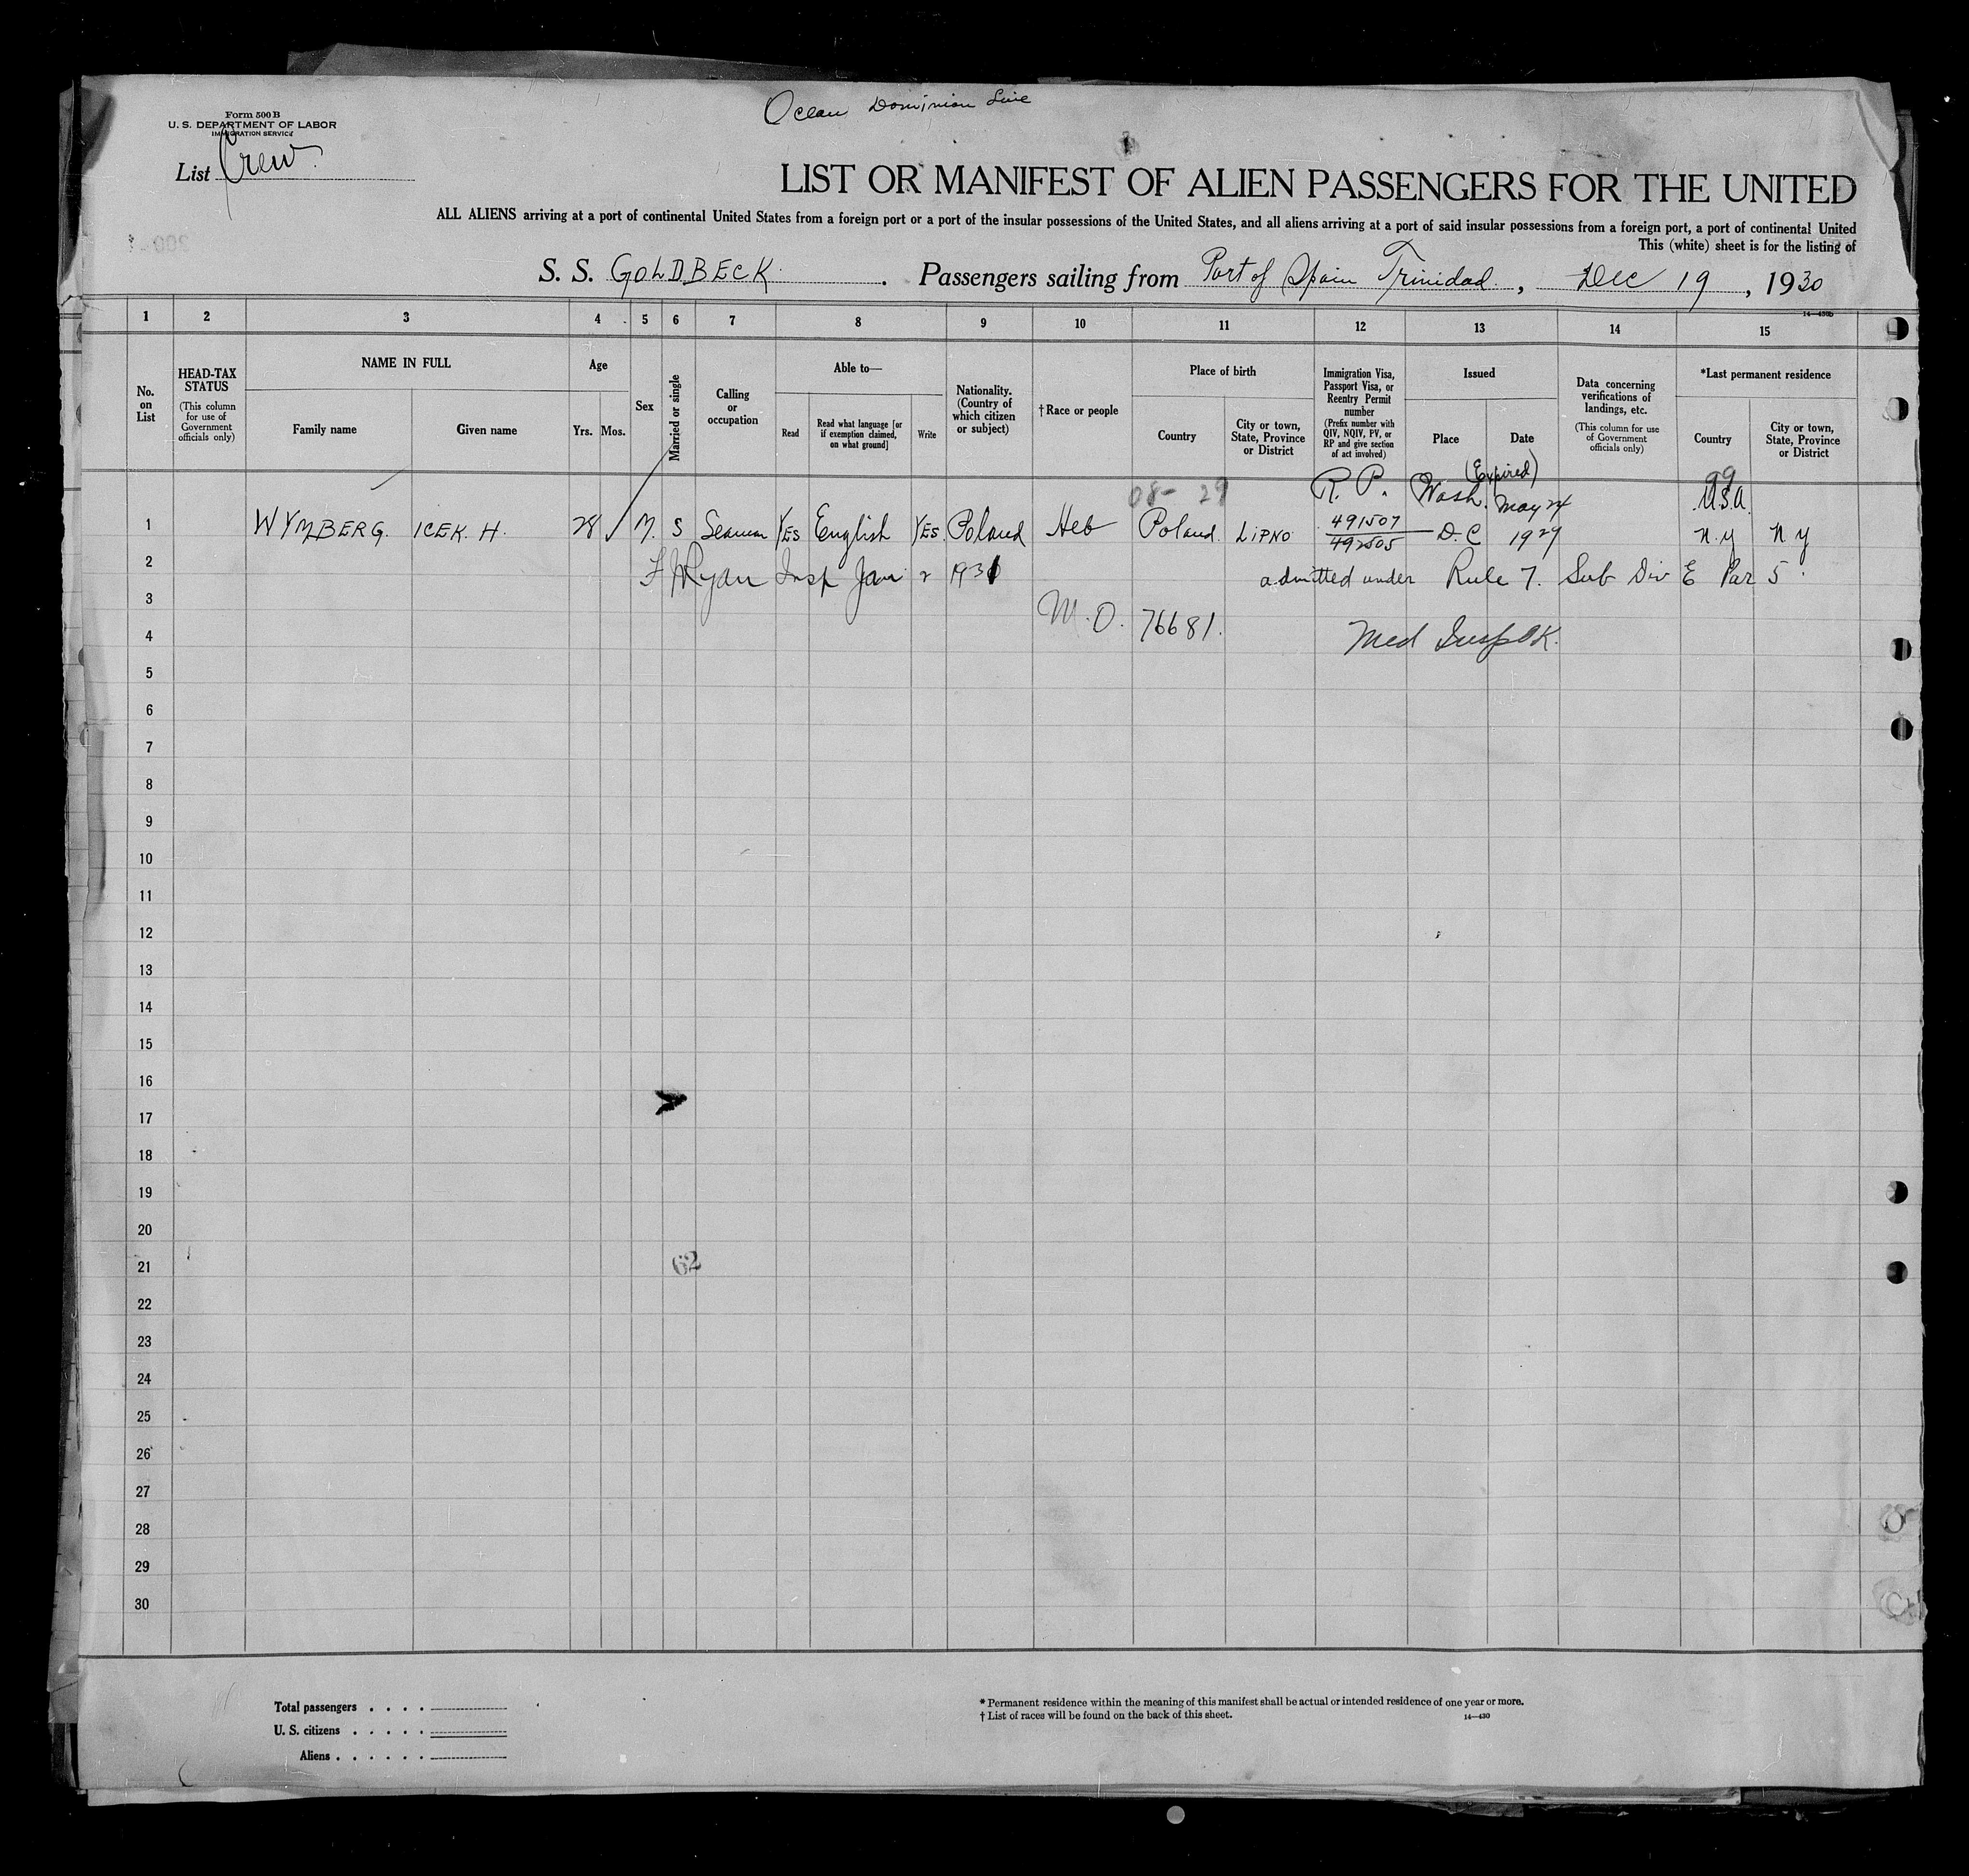 Ocean Dominion Line
Form 500 B
U. S. DEPARTMENT OF LABOR
IMMIGRATION SERVICE
List Crew
LIST OR MANIFEST OF ALIEN PASSENGERS FOR THE UNITED
ALL ALIENS arriving at a port of continental United States from a foreign port or a port of the insular possessions of the United States, and all aliens arriving at a port of said insular possessions from a foreign port, a port of continental United
This (white) sheet is for the listing of
S. S. GOLDBECK. Passengers sailing from Port of Spain Trinidad., Dec 19, 1930
14—430b
1 2 3 4 5 6 7 8 9 10 11 12 13 14 15
No. on List
HEAD-TAX STATUS (This column for use of Government officials only)
NAME IN FULL
Family name Given name
Age
Yrs. Mos.
Sex
Married or single
Calling or occupation
Able to—
Read Read what language [or if exemption claimed, on what ground] Write
Nationality. (Country of which citizen or subject)
†Race or people
Place of birth
Country City or town, State, Province or District
Immigration Visa, Passport Visa, or Reentry Permit number (Prefix number with QIV, NQIV, PV, or RP and give section of act involved)
Issued
Place Date
Data concerning verifications of landings, etc. (This column for use of Government officials only)
*Last permanent residence
Country City or town, State, Province or District
08- 29 R. P. Wash. (Expired) May 24 99 U.S.A.
1 WYMBERG. ICEK. H. 28 M. S Seaman YES English YES. Poland Heb Poland. LIPNO 491507 492505 D.C 1929 N.Y N Y
2 F J Ryan Insp Jan 2 1931 admitted under Rule 7. Sub Div E Par 5.
3 M.O. 76681.
4 Med Insp OK.
5
6
7
8
9
10
11
12
13
14
15
16
17
18
19
20
21 62
22
23
24
25
26
27
28
29
30
Total passengers . . . .
U. S. citizens . . . . .
Aliens . . . . . .
* Permanent residence within the meaning of this manifest shall be actual or intended residence of one year or more.
† List of races will be found on the back of this sheet. 14—430